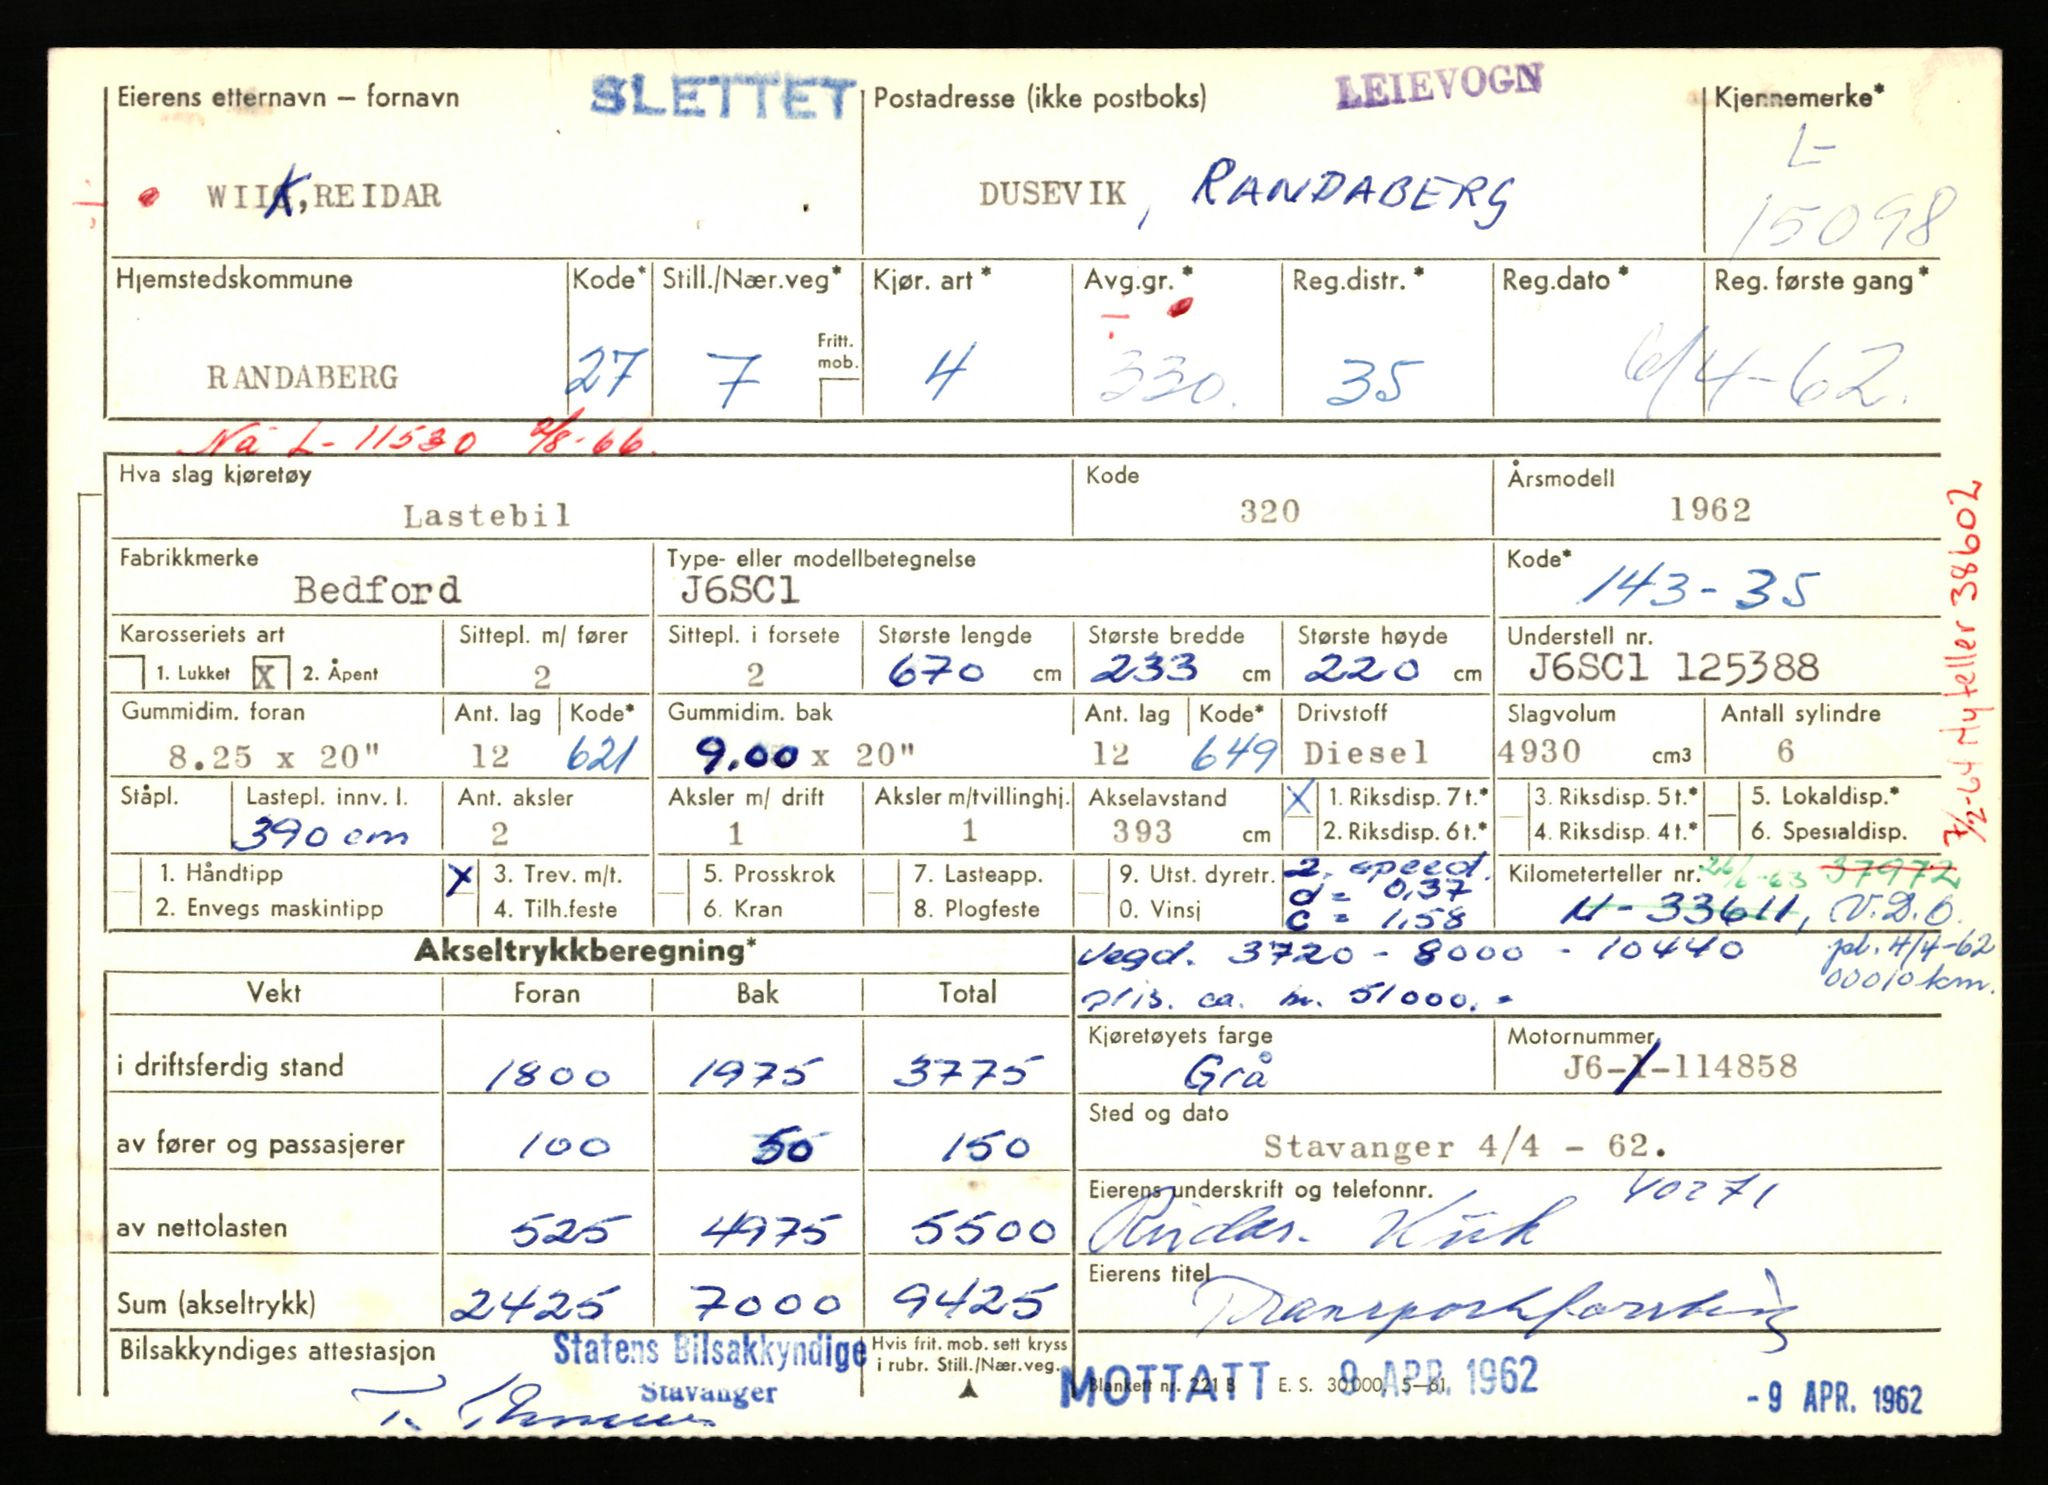 Eierens etternavn – fornavn SLETTET Postadresse (ikke postboks) LEIEVOGN Kjennemerke*
WIIK, REIDAR DUSEVIK, RANDABERG L-
15098
Hjemstedskommune Kode* Still./Nær.veg* Kjør. art* Avg.gr.* Reg.distr.* Reg.dato* Reg. første gang*
Fritt. mob.
RANDABERG 27 7 4 330. 35 6/4-62.
Nå L-11530 2/8-66.
Hva slag kjøretøy Kode Årsmodell
Lastebil 320 1962
Fabrikkmerke Type- eller modellbetegnelse Kode*
Bedford J6SC1 143-35
Karosseriets art Sittepl. m/ fører Sittepl. i forsete Største lengde Største bredde Største høyde Understell nr.
1. Lukket X 2. Åpent 2 2 670 cm 233 cm 220 cm J6SC1 125388
Gummidim. foran Ant. lag Kode* Gummidim. bak Ant. lag Kode* Drivstoff Slagvolum Antall sylindre
8.25 x 20" 12 621 9.00 x 20" 12 649 Diesel 4930 cm3 6
Ståpl. Lastepl. innv. l. Ant. aksler Aksler m/ drift Aksler m/tvillinghj. Akselavstand X 1. Riksdisp. 7 t.* 3. Riksdisp. 5 t.* 5. Lokaldisp.*
390 cm 2 1 1 393 cm 2. Riksdisp. 6 t.* 4. Riksdisp. 4 t.* 6. Spesialdisp.
1. Håndtipp X 3. Trev. m/t. 5. Prosskrok 7. Lasteapp. 9. Utst. dyretr. 2. speed. Kilometerteller nr. 26/6-63 37972
2. Envegs maskintipp 4. Tilh.feste 6. Kran 8. Plogfeste 0. Vinsj d = 0,37
c = 1,58 N-33611, V.D.O.
Akseltrykkberegning* Vegd. 3720 - 8000 - 10440 pl. 4/4-62
pris. ca. kr. 51000.- 00010 km.
Vekt Foran Bak Total
Kjøretøyets farge Motornummer
i driftsferdig stand 1800 1975 3775 Grå J6-1-114858
Sted og dato
av fører og passasjerer 100 50 150 Stavanger 4/4 - 62.
Eierens underskrift og telefonnr. 40271
av nettolasten 525 4975 5500 Reidar Kiik
Eierens titel
Sum (akseltrykk) 2425 7000 9425
Bilsakkyndiges attestasjon Statens Bilsakkyndige Hvis frit. mob. sett kryss
i rubr. Still./Nær.veg.
Stavanger
MOTTATT 9 APR. 1962
Blankett nr. 221 B E. S. 30000, 5–61.
- 9 APR. 1962
7/2-64 Ny teller 38602